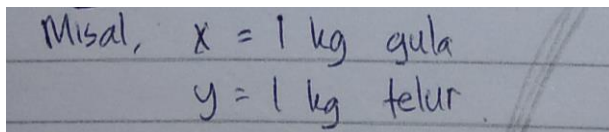 Misal, x = 1 kg gula
y = 1 kg telur